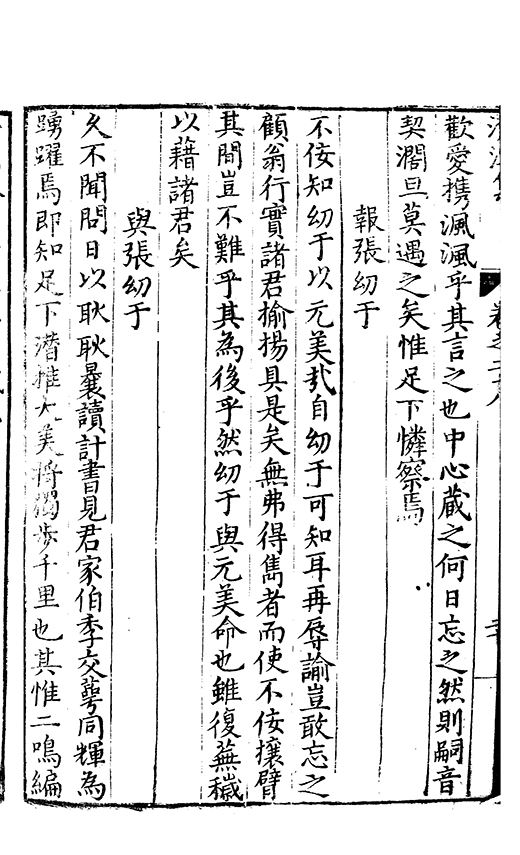 歡愛携渢渢乎其言之也中心藏之何日忘之然則嗣音
契濶旦莫遇之矣惟足下憐察焉
報張㓜于
不佞知㓜于以元美㢤自㓜于可知耳再辱諭豈敢忘之
顧翁行實諸君揄揚具是矣無弗得雋者而使不佞攘臂
其間豈不難乎其為後乎然㓜于與元美命也雖復蕪穢
以藉諸君矣
與張㓜于
久不聞問日以耿耿曩讀計書見君家伯季交萼同輝為
踴躍焉即知足下潛推元美將獨步千里也其惟二鳴編